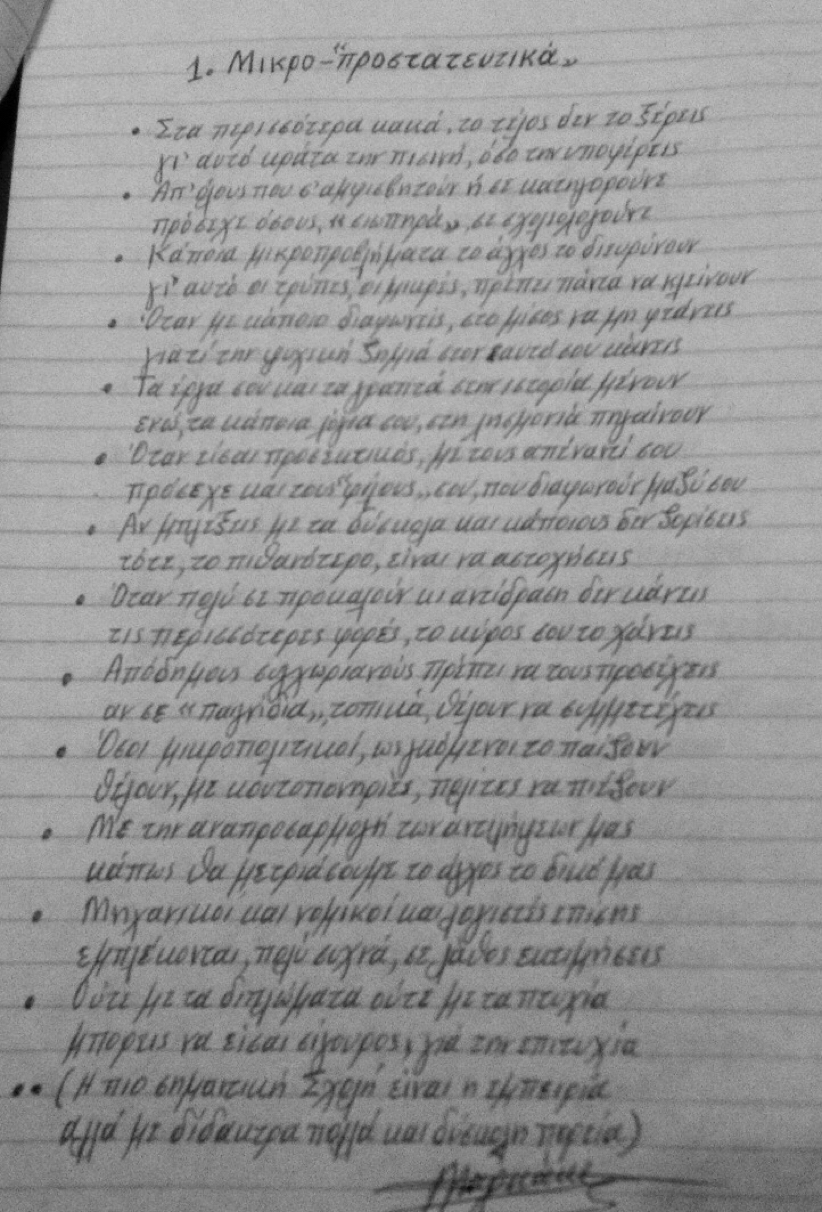 1. Μικρο-“προστατευτικά„
• Στα περισσότερα κακά, το τέλος δεν το ξέρεις
γι' αυτό κράτα την πισινή, όσο την υποφέρεις
• Απ' όλους που σ' αμφισβητούν ή σε κατηγορούνε
πρόσεχε όσους, “σιωπηρά„, σε σχολιολογούνε
• Κάποια μικροπροβλήματα το άγχος το διευρύνουν
γι' αυτό οι τρύπες, οι μικρές, πρέπει πάντα να κλείνουν
• Όταν με κάποιο διαφωνείς, στο μίσος να μη φτάνεις
γιατί την ψυχική ζημιά στον εαυτό σου κάνεις
• Τα έργα σου και τα γραπτά στην ιστορία μένουν
ενώ, τα κάποια λόγια σου, στη λησμονιά πηγαίνουν
• Όταν είσαι προσεκτικός, με τους απέναντί σου
πρόσεχε και τους “φίλους„ σου, που διαφωνούν μαζύ σου
• Αν μπλέξεις με τα δύσκολα και κάποιους δεν ξορίσεις
τότε, το πιθανότερο, είναι να αστοχήσεις
• Όταν πολύ σε προκαλούν κι αντίδραση δεν κάνεις
τις περισσότερες φορές, το κύρος σου το χάνεις
• Απόδημους συγχωριανούς πρέπει να τους προσέχεις
αν σε “παιγνίδια„, τοπικά, θέλουν να συμμετέχεις
• Όσοι μικροπολιτικοί, ως γκόμενοι το παίζουν
θέλουν, με κουτοπονηριές, πολίτες να πιέζουν
• Με την αναπροσαρμογή των αντιλήψεων μας
κάπως θα μετριάσουμε το άγχος το δικό μας
• Μηχανικοί και νομικοί και λογιστές επίσης
εμπλέκονται, πολύ συχνά, σε λάθος εκτιμήσεις
• Ούτε με τα διπλώματα ούτε με τα πτυχία
μπορείς να είσαι σίγουρος, γιά την επιτυχία
•• (Η πιο σημαντική Σχολή είναι η εμπειρία
αλλά με δίδακτρα πολλά και δύσκολη πορεία)